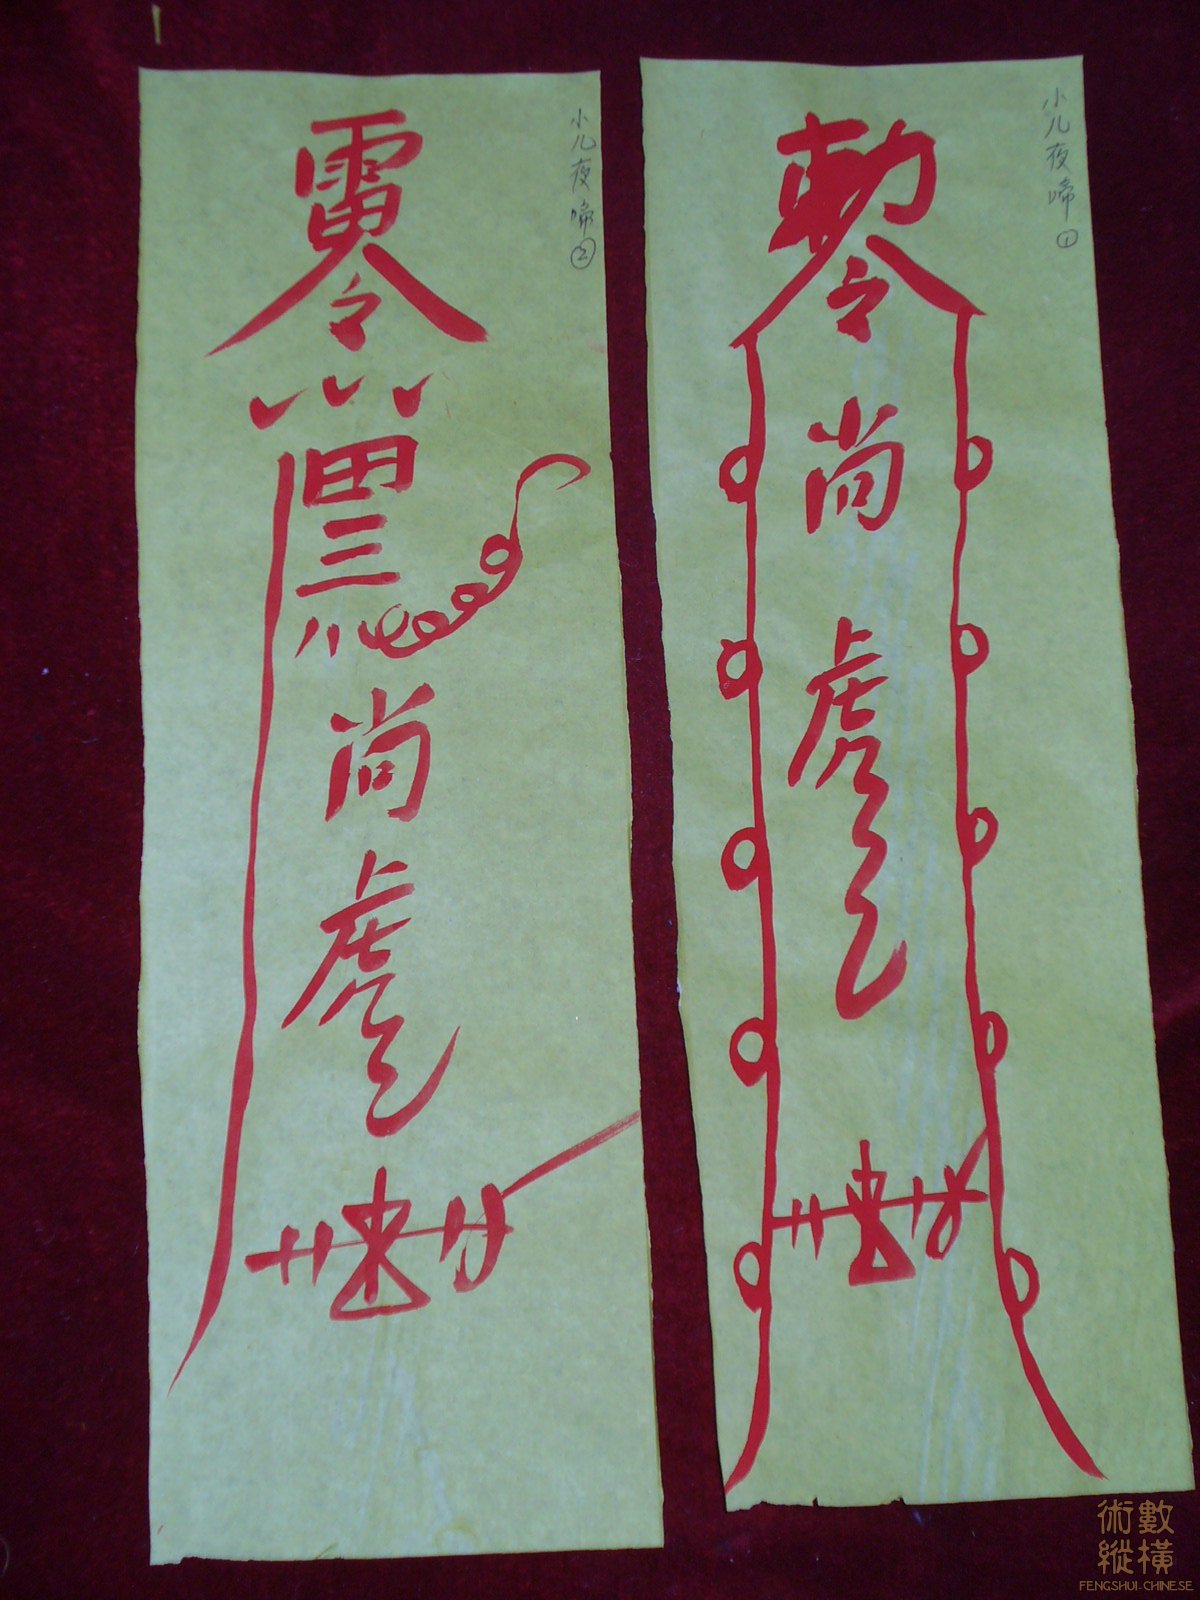 小儿夜啼①
勅令
尚
虎
小儿夜啼②
雷令
尚
虎
術數
縱橫
FENGSHUI-CHINESE